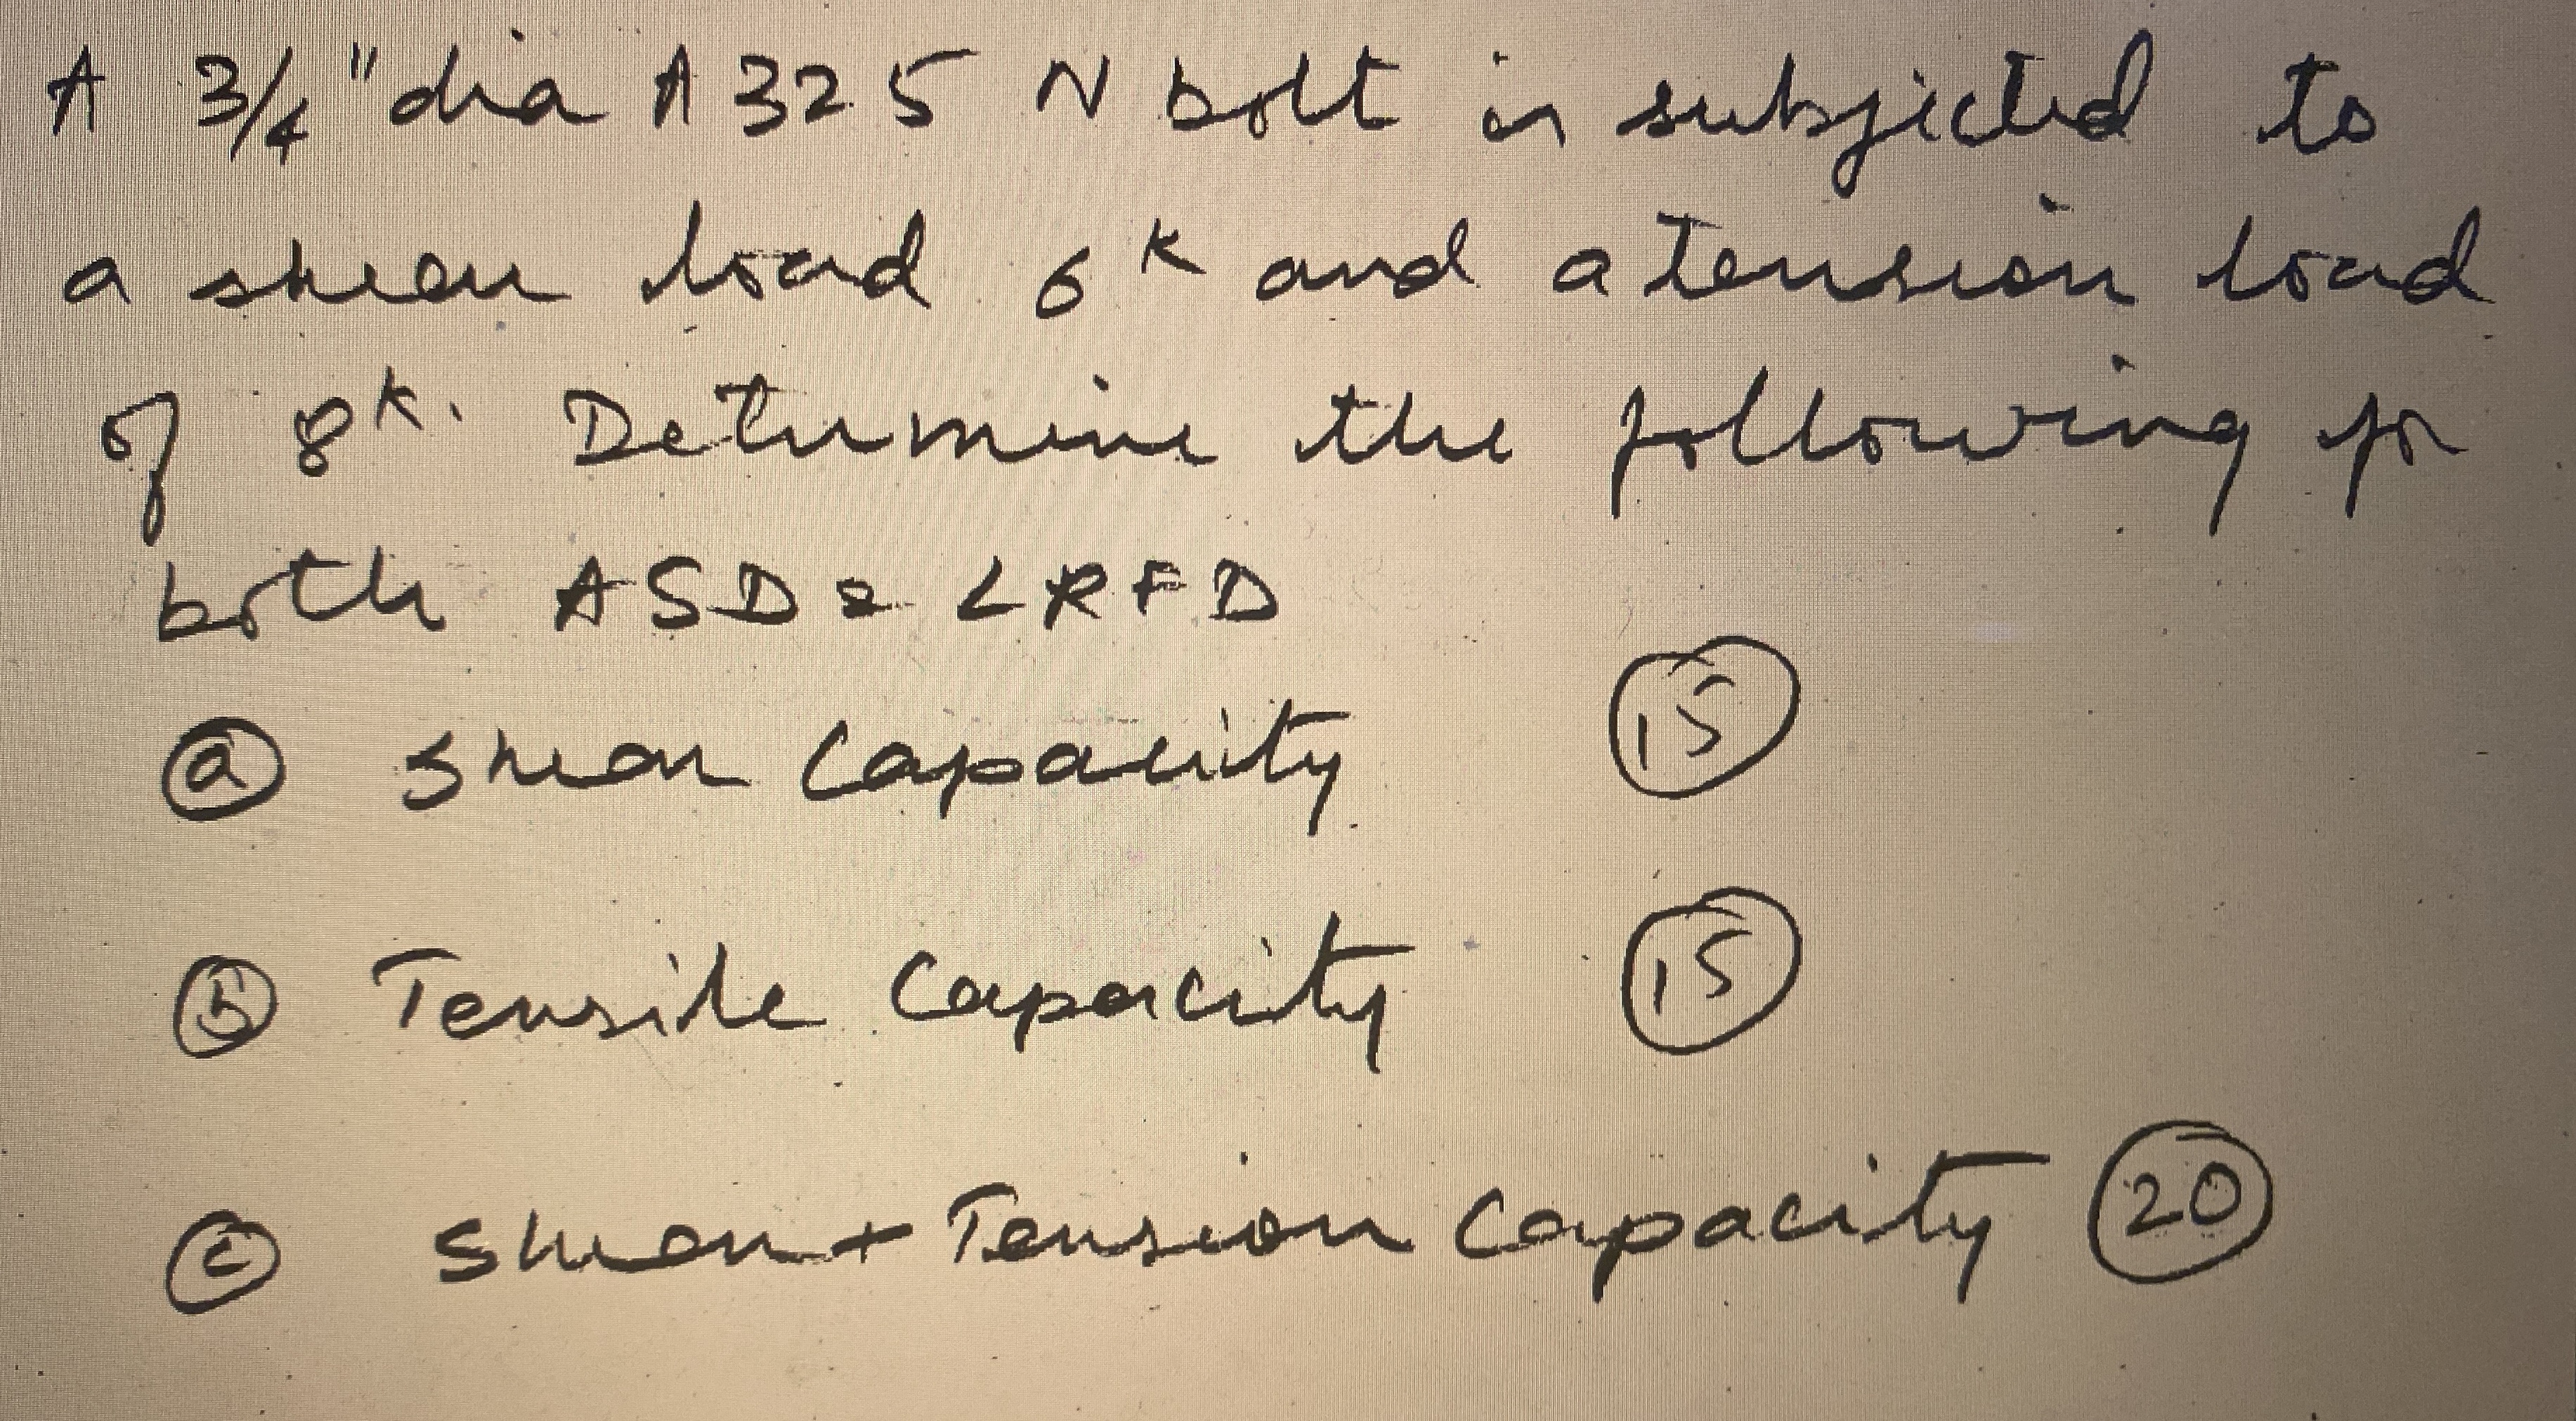 A 3/4" dia A325 N bolt is subjected to
a shear load 6ᴷ and a tension load
of 8ᴷ. Determine the following for
both ASD & LRFD
ⓐ Shear Capacity. ⑮
ⓑ Tensile Capacity ⑮
ⓒ Shear + Tension Capacity ⑳